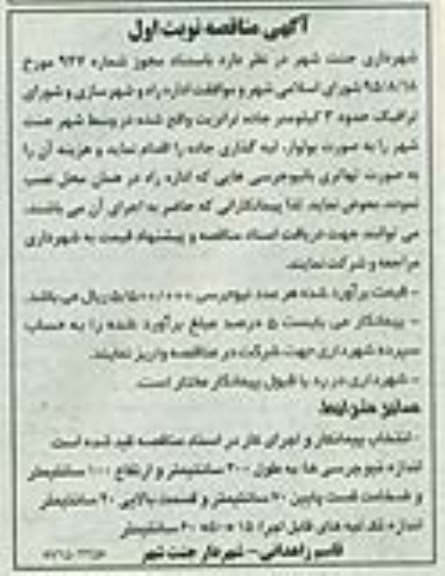 آگهی مناقصه نوبت اول
شهرداری جنت شهر در نظر دارد باستناد مجوز شماره ۹۲۲ مورخ
۹۵/۸/۱۸ شورای اسلامی شهر و موافقت اداره راه و شهرسازی و شورای
ترافیک حدود ۳ کیلومتر جاده ترانزیت واقع شده در وسط شهر جنت
شهر را به صورت بولوار، لبه گذاری جاده را اقدام نماید و هزینه آن را
به صورت تهاتری با نیوجرسی هایی که اداره راه در همان محل نصب
نموده، معوض نماید. لذا پیمانکارانی که حاضر به اجرای آن می باشند،
می توانند جهت دریافت اسناد مناقصه و پیشنهاد قیمت به شهرداری
مراجعه و شرکت نمایند.
- قیمت برآورد شده هر عدد نیوجرسی ۵/۵۰۰/۰۰۰ ریال می باشد.
- پیمانکار می بایست ۵ درصد مبلغ برآورد شده را به حساب
سپرده شهرداری جهت شرکت در مناقصه واریز نمایند.
- شهرداری در رد یا قبول پیمانکار مختار است.
سایر شرایط:
- انتخاب پیمانکار و اجرای کار در اسناد مناقصه قید شده است
اندازه نیوجرسی ها به طول ۳۰۰ سانتیمتر و ارتفاع ۱۰۰ سانتیمتر
و ضخامت قسمت پایین ۷۰ سانتیمتر و قسمت بالایی ۲۰ سانتیمتر
اندازه تک لبه های قابل اجرا: ۱۵*۵۰*۶۰ سانتیمتر
قاسم زاهدانی - شهردار جنت شهر